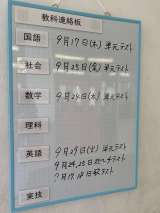 教科連絡板
国語 9月17日(木) 単元テスト
社会 9月25日(金) 単元テスト
数学 9月24日(木) 単元テスト
理科
英語 9月29日(火) 単元テスト
9月24,25日
9月17,18日
実技